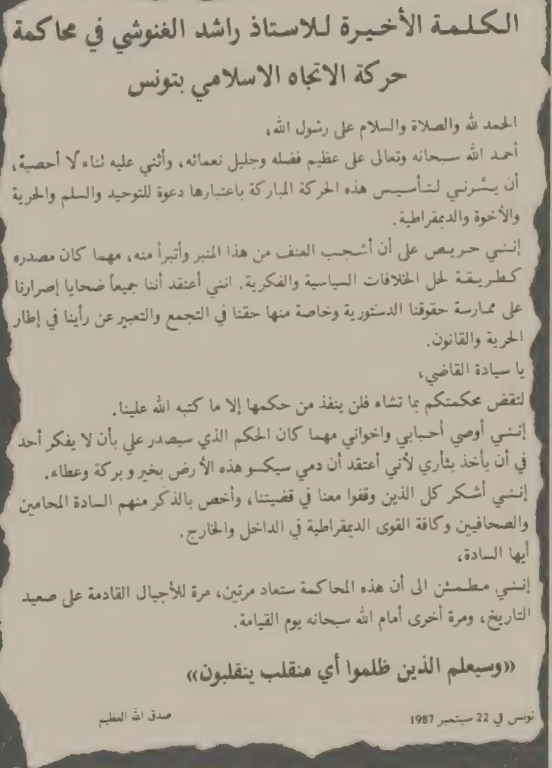 الكلمة الأخيرة للاستاذ راشد الغنوشي في محاكمة
حركة الاتجاه الاسلامي بتونس
الحمد لله والصلاة والسلام على رسول الله،
أحمد الله سبحانه وتعالى على عظيم فضله وجليل نعمائه، وأثني عليه ثناء لا أحصية،
أن يشرني لتأسيس هذه الحركة المباركة باعتبارها دعوة للتوحيد والسلم والحرية
والأخوة والديمقراطية.
إنني حريص على أن أشجب العنف من هذا المنبر وأتبرأ منه، مهما كان مصدره
كطريقة لحل الخلافات السياسية والفكرية. انني أعتقد أننا جميعاً ضحايا إصرارنا
على ممارسة حقوقنا الدستورية وخاصة منها حقنا في التجمع والتعبير عن رأينا في إطار
الحرية والقانون.
يا سيادة القاضي،
لتقض محكمتكم بما تشاء فلن ينفذ من حكمها إلا ما كتبه الله علينا.
إنني أوصي أحبابي واخواني مهما كان الحكم الذي سيصدر علي بأن لا يفكر أحد
في أن يأخذ بثأري لأني أعتقد أن دمي سيكسو هذه الأرض بخير وبركة وعطاء.
إنني أشكر كل الذين وقفوا معنا في قضيتنا، وأخص بالذكر منهم السادة المحامين
والصحافيين وكافة القوى الديمقراطية في الداخل والخارج.
أيها السادة،
إنني مطمئن الى أن هذه المحاكمة ستعاد مرتين، مرة للأجيال القادمة على صعيد
التاريخ، ومرة أخرى أمام الله سبحانه يوم القيامة.
«وسيعلم الذين ظلموا أي منقلب ينقلبون»
صدق الله العظيم
تونس في 22 سبتمبر 1987